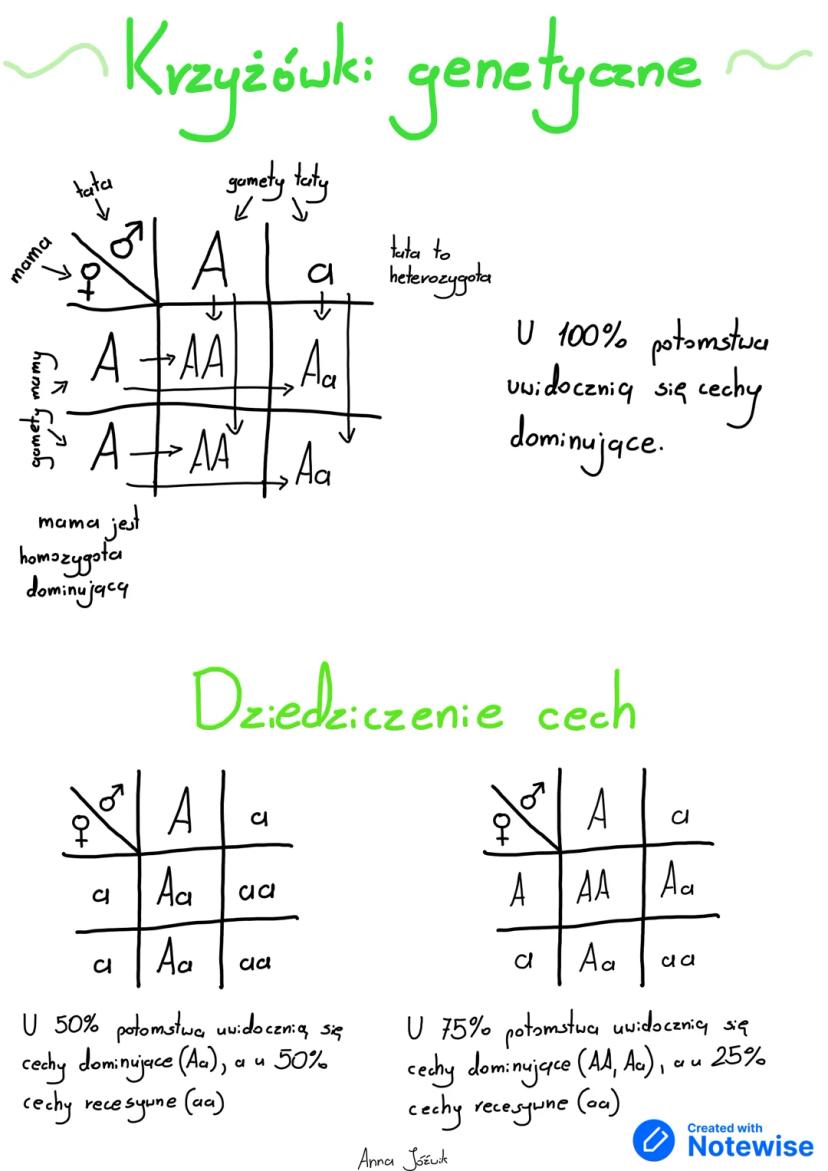 Krzyżówki genetyczne
tata
gamety taty
mama
♂
♀
A
a
tata to
heterozygota
gamety mamy
A
AA
Aa
A
AA
Aa
mama jest
homozygotą
dominującą
U 100% potomstwa
uwidocznią się cechy
dominujące.
Dziedziczenie cech
♂
♀
A
a
a
Aa
aa
a
Aa
aa
U 50% potomstwa uwidocznią się
cechy dominujące (Aa), a u 50%
cechy recesywne (aa)
♂
♀
A
a
A
AA
Aa
a
Aa
aa
U 75% potomstwa uwidocznią się
cechy dominujące (AA, Aa), a u 25%
cechy recesywne (aa)
Anna Jóźwik
Created with
Notewise